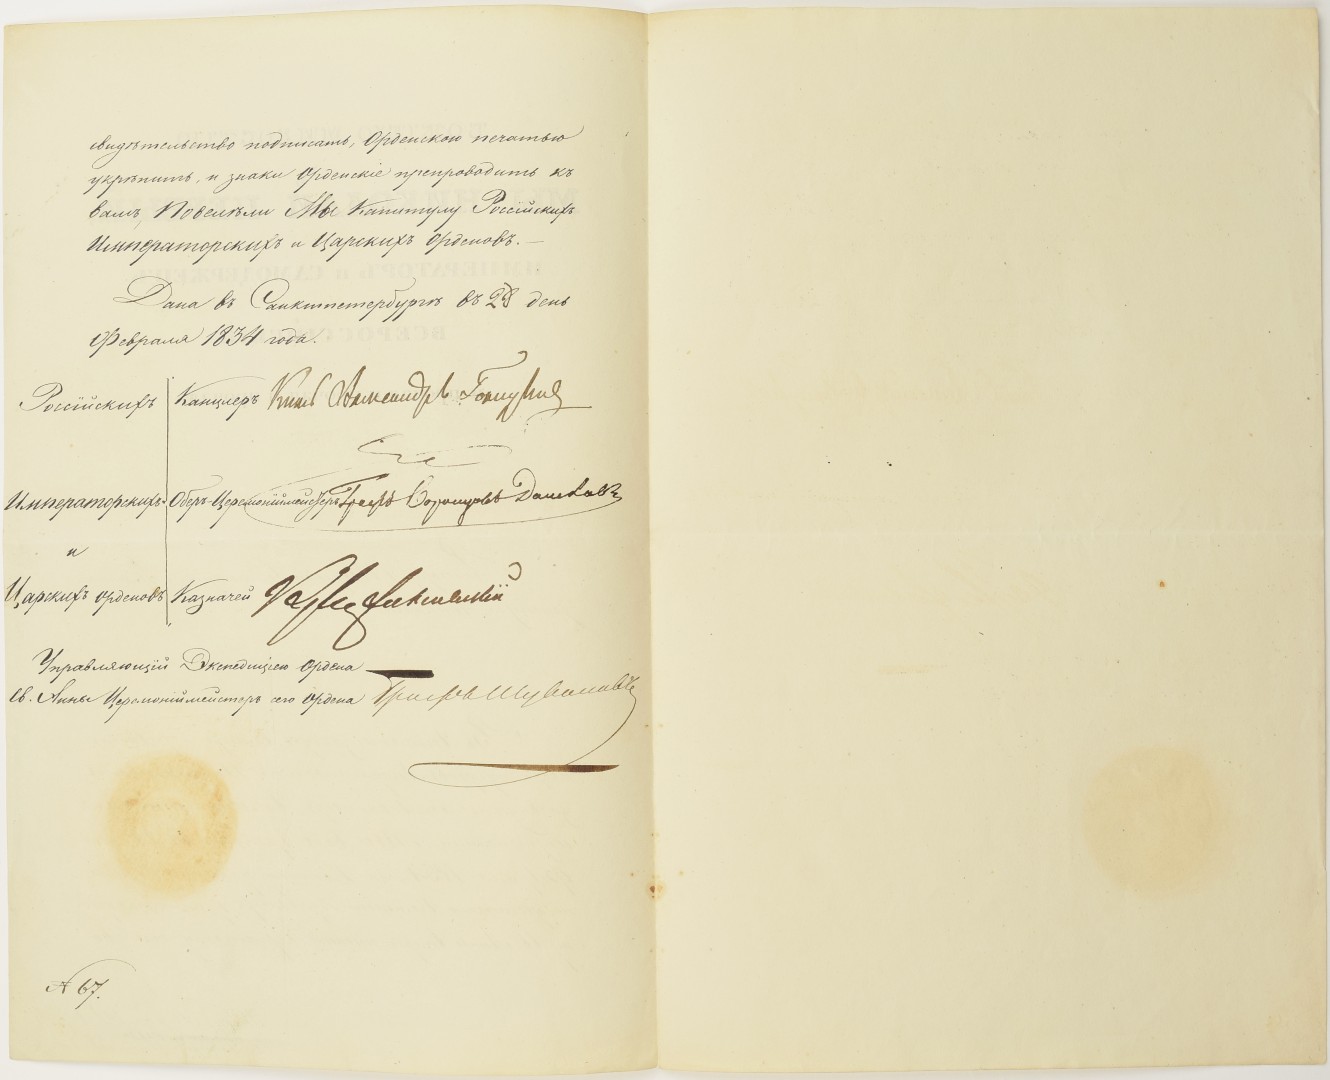 свидѣтельство подписать, Орденскою печатью
укрѣпить, и знаки Орденскіе препроводить къ
вамъ, Повелѣли Мы Капитулу Россійскихъ
Императорскихъ и Царскихъ Орденовъ. —
Дана въ Санктпетербургѣ въ 28 день
Февраля 1834 года.
Россійскихъ Канцлеръ Князь Александръ Голицынъ
Императорскихъ Оберъ-Церемоніймейстеръ Графъ Воронцовъ Дашковъ
и
Царскихъ орденовъ Казначей
Управляющій Экспедиціею Ордена
Св. Анны Церемоніймейстеръ сего Ордена Графъ Шуваловъ
№ 67.